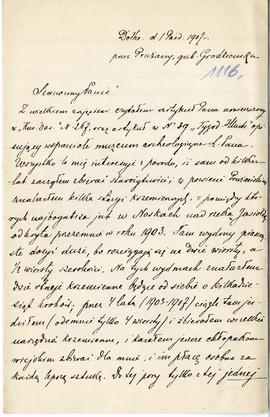 Dotho. d. 1 Paźd. 1907 r.
przez Prużany, gub. Grodzieńska
1116,
Szanowny Panie!
Z wielkiem zajęciem czytałem artykuł Pana umieszczony
w "Kur. War." N 267, oraz artykuł w N 39 "Tygod. Illustr." opi-
sujący wspaniałe muzeum archeologiczne Sz. Pana.
Wszystko to mię interesuje z powodu, iż sam od kilku
lat zacząłem zbierać starożytności, w powiecie Prużańskim
znalazłem kilka stacyi krzemiennych, z pomiędzy któ-
rych najbogatsza jest w Noskach nad rzeką Jasiołdą
odkryta przezemnie w roku 1903. Są tam wydmy piaszczy-
ste dosyć duże, bo rozciągają się na dwie wiorsty, a
½ wiorsty szerokości. Na tych wydmach znalazłem
dwie stacye krzemienne będące od siebie o kilkadzie-
siąt kroków, przez 4 lata (903-907) ciągle tam jeź-
dziłem (odemnie tylko 4 wiorsty) i zbierałem wszelkie
narzędzia krzemienne, i kazałem jeszcze chłopakom
wiejskim zbierać dla mnie, i im płacę osobno za
każdą lepszą sztukę. Do tej pory tylko z tej jednej